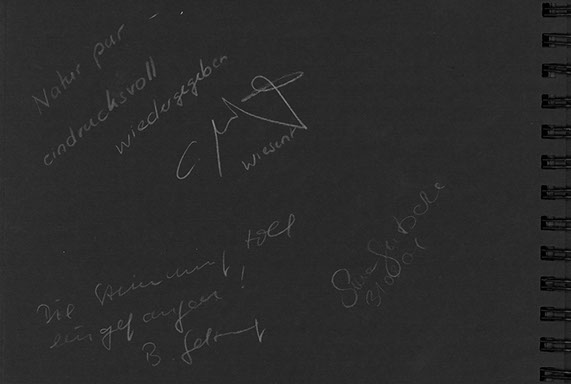 Natur pur -
eindrucksvoll
wiedergegeben
Wiesent
Die Stimmung toll
eingefangen!
B.